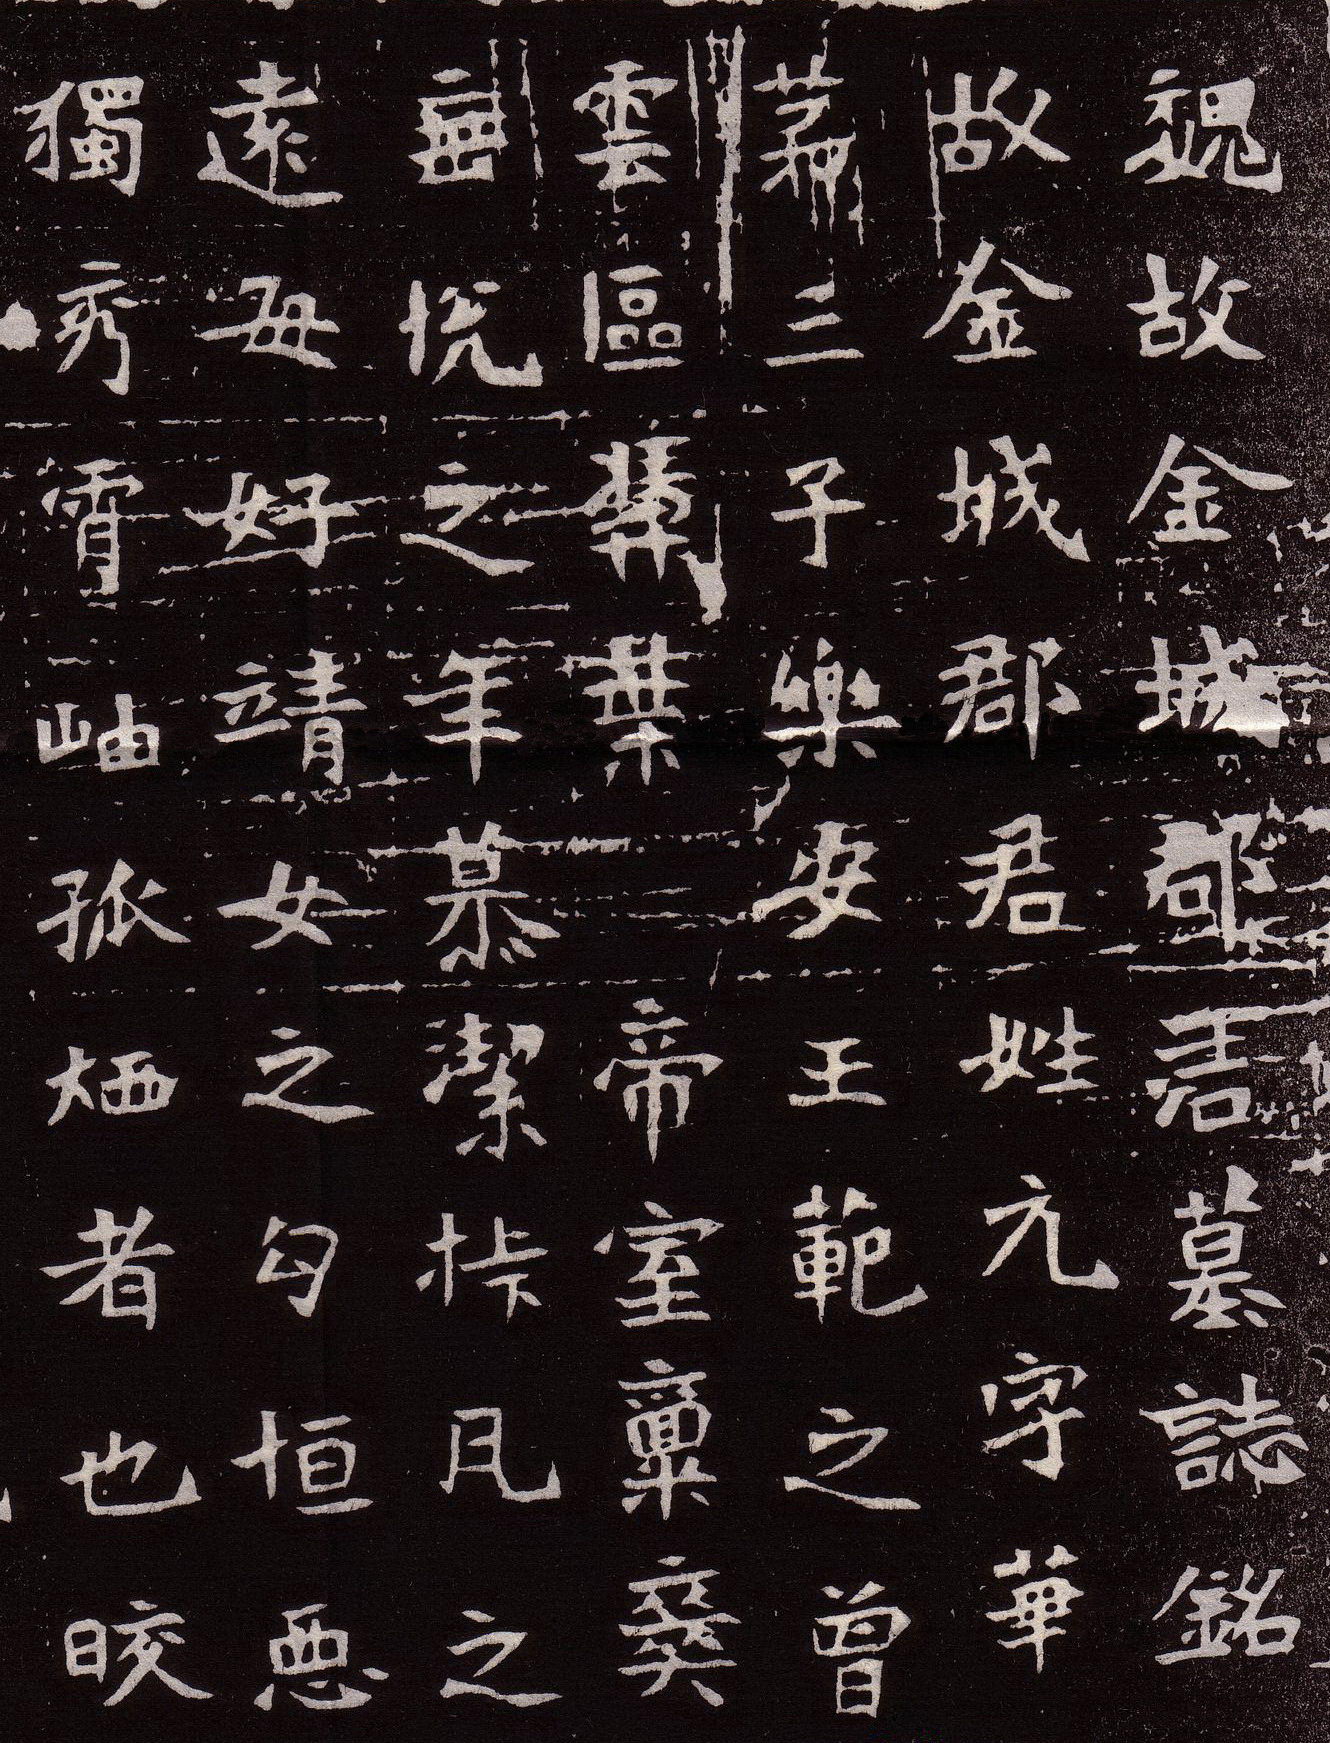 魏故金城郡君墓誌銘
故金城郡君姓元字華
苐三子樂安王範之曾
雲區葉帝室稟彝
悅之年慕潔凡之
遠毋好靖女之勾恒惡
獨秀霄岫孤炳者也皎